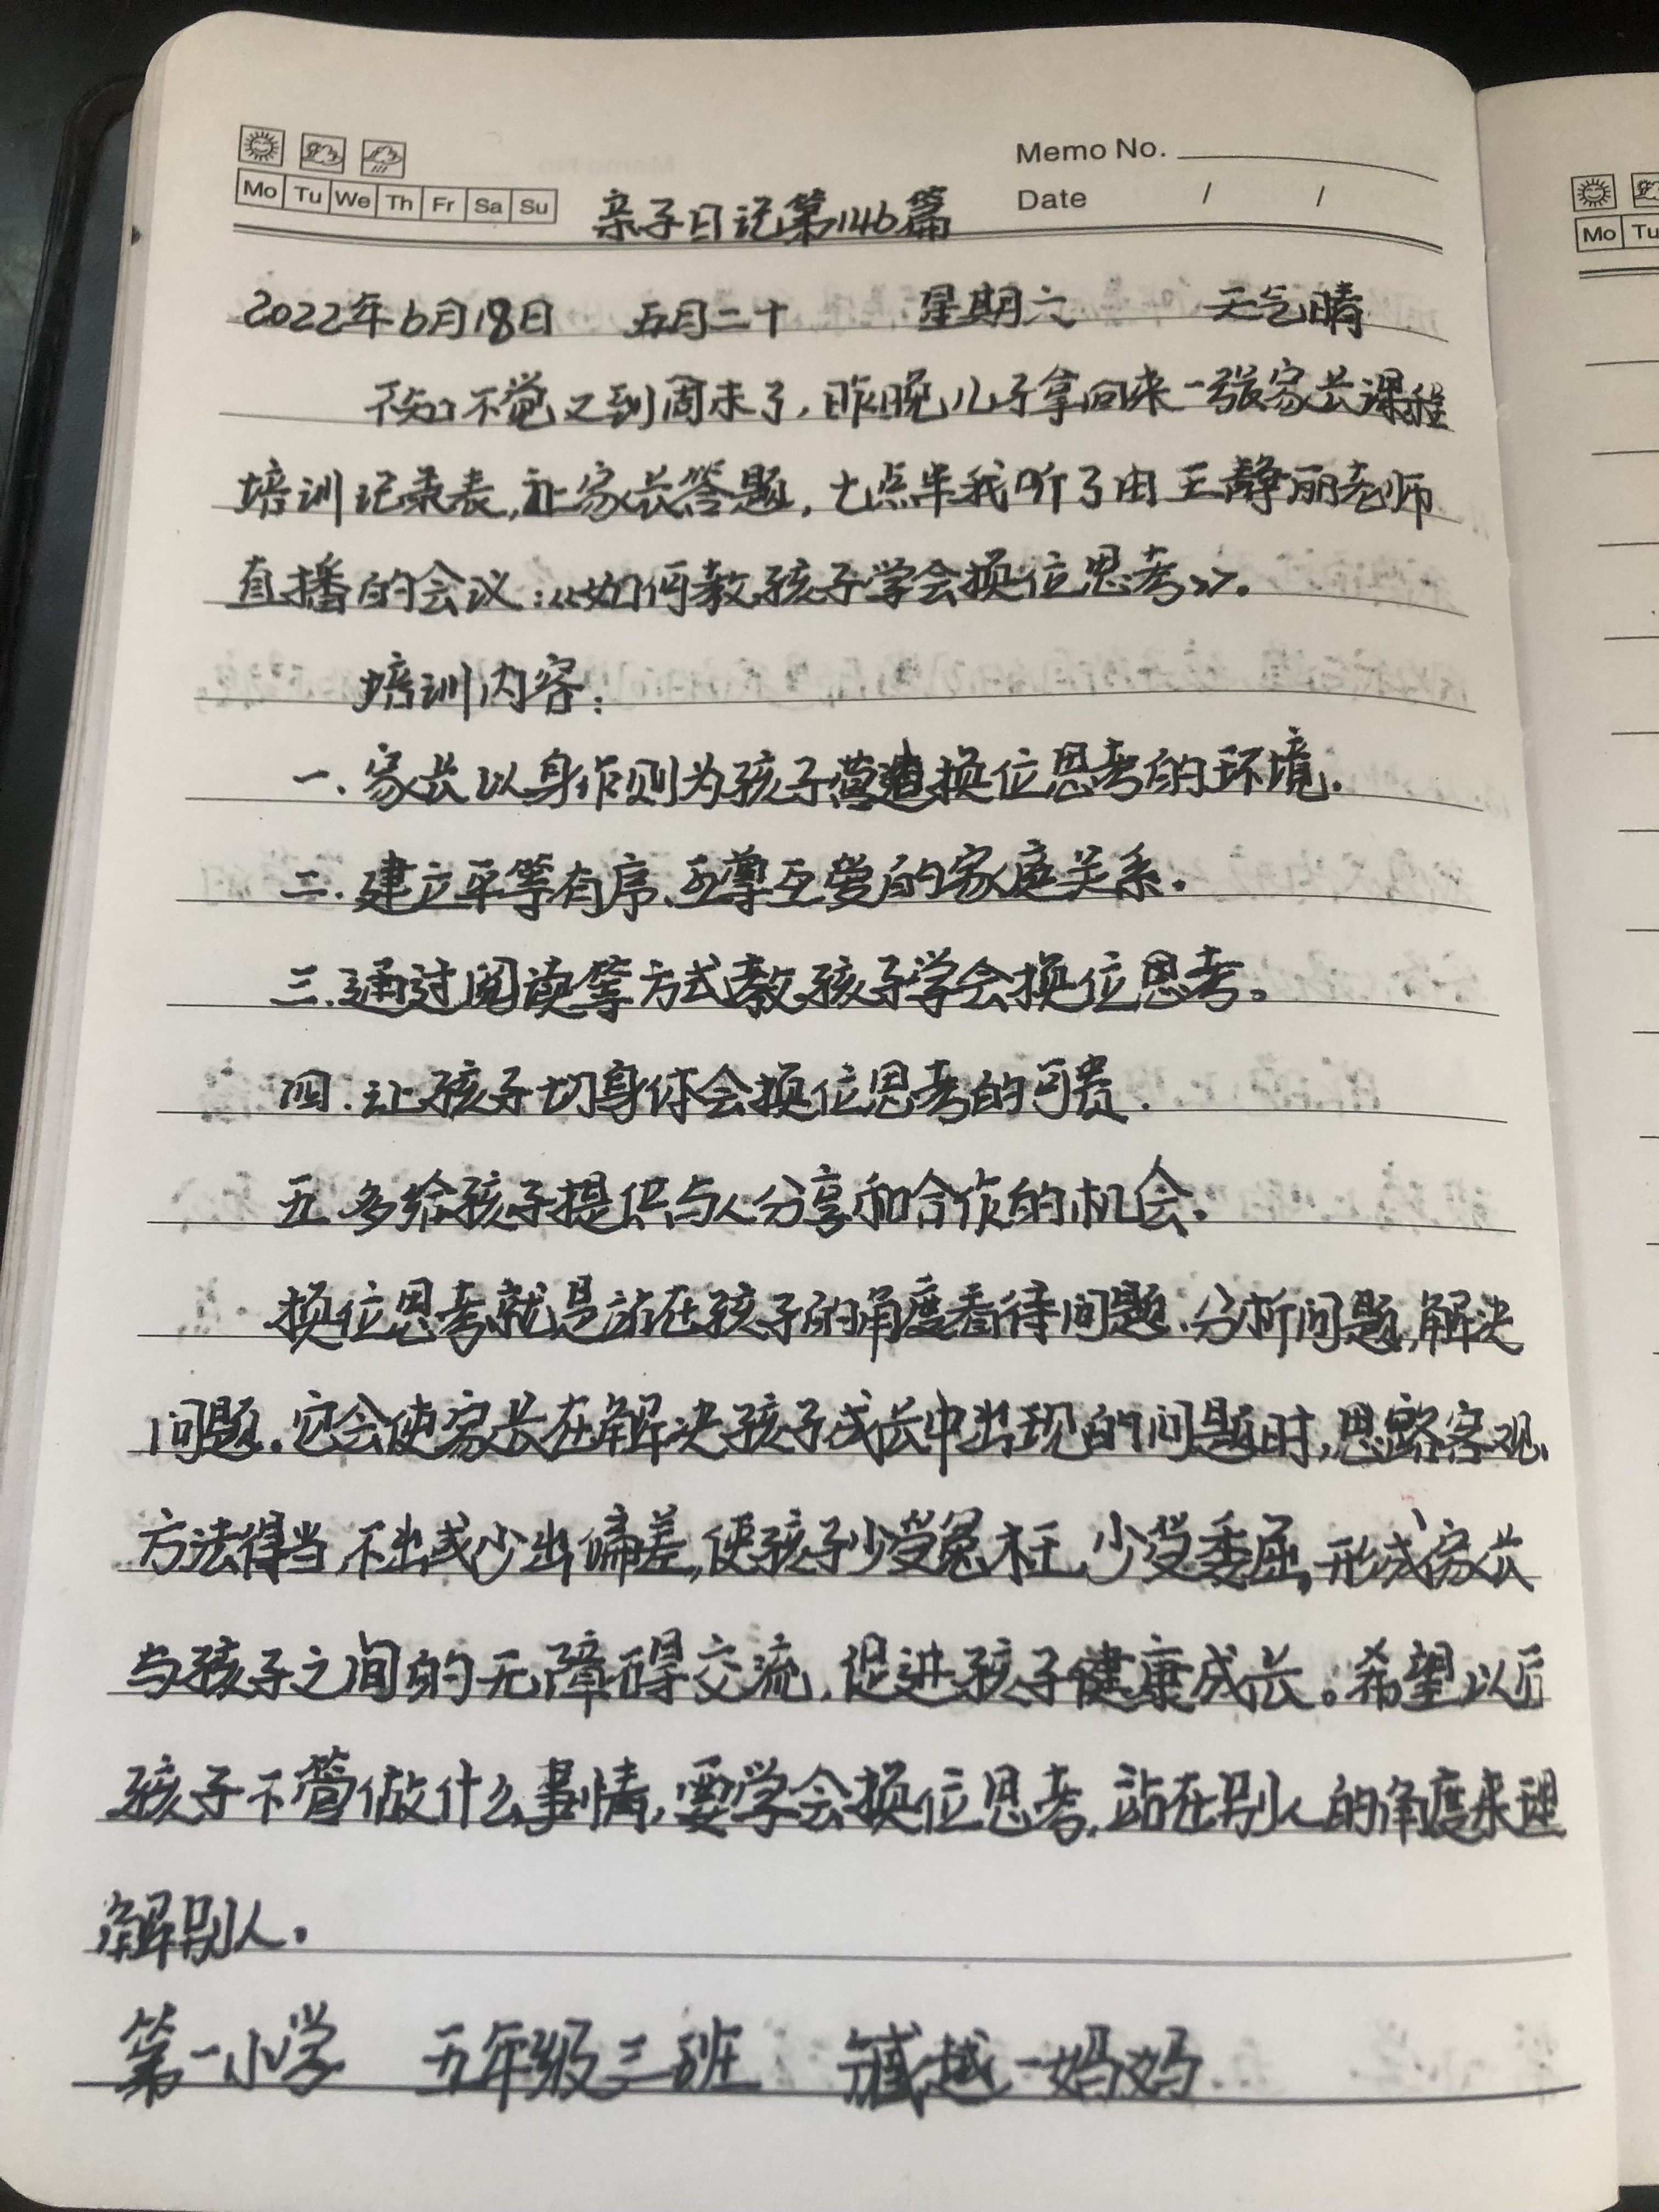 Memo No.
Mo Tu We Th Fr Sa Su
Date / /
亲子日记第146篇
2022年6月18日 五月二十 星期六 天气晴
不知不觉又到周末了,昨晚儿子拿回来一张家长课程
培训记录表,让家长答题,七点半我听了由王静丽老师
直播的会议:《如何教孩子学会换位思考》。
培训内容:
一.家长以身作则为孩子营造换位思考的环境.
二.建立平等有序、互尊互爱的家庭关系.
三.通过阅读等方式教孩子学会换位思考。
四.让孩子切身体会换位思考的可贵.
五.多给孩子提供与人分享和合作的机会.
换位思考就是站在孩子的角度看待问题.分析问题,解决
问题.它会使家长在解决孩子成长中出现的问题时,思路客观,
方法得当,不出或少出偏差,使孩子少受冤枉,少受委屈,形成家长
与孩子之间的无障碍交流,促进孩子健康成长。希望以后
孩子不管做什么事情,要学会换位思考,站在别人的角度来理
解别人.
第一小学 五年级三班 臧越一妈妈
Mo Tu